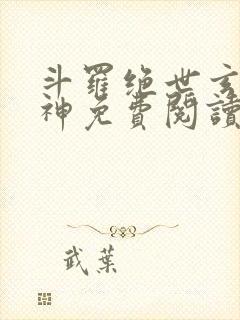 斗羅绝世玄
神免費閱讀
武葉